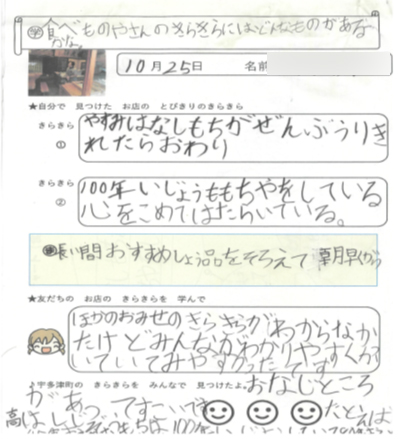 食べものやさんのきらきらにはどんなものがある
かな。
10月25日 名前
★自分で 見つけた お店の とびきりのきらきら
きらきら
①
やすみはなしもちがぜんぶうりき
れたらおわり
きらきら
②
100年いじょうももちやをしている
心をこめてはたらいている。
長い間おすすめしょう品をそろえて 朝早くから
★友だちの お店の きらきらを 学んで
ほかのおみせのきらきらがわからなか
たけどみんながわかりやすくか
いていてみやすかったです
宇多津町の きらきらを みんなで 見つけたよ
おなじところ
があってすごいです
たとえば